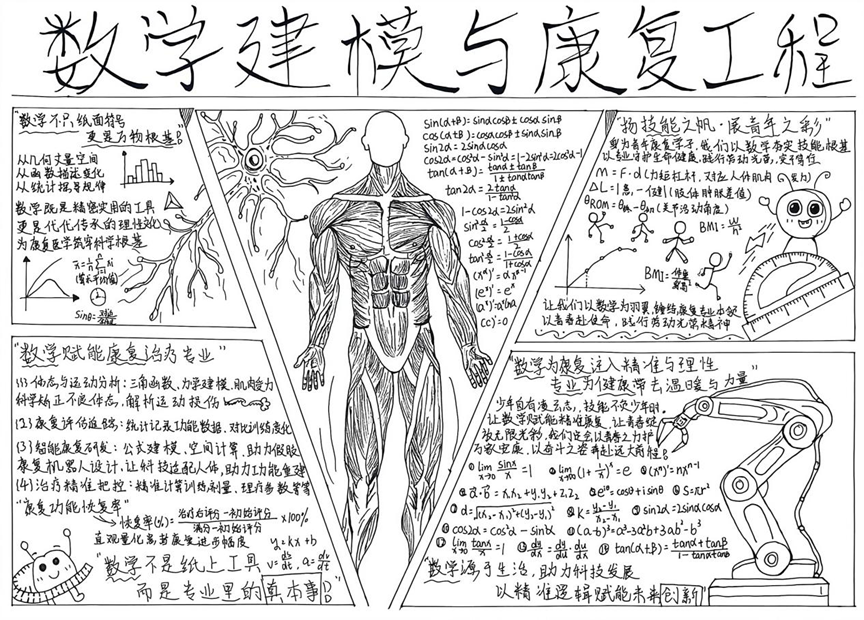 数学建模与康复工程
"数学不只纸面符号
更是万物根基"
从几何丈量空间
从函数描述变化
从统计揭示规律
数学既是精密实用的工具
更是代代传承的理性文化
为康复医学筑牢科学根基
sinθ=
sin(α+β)=sinαcosβ±cosαsinβ
cos(α+β)=cosαcosβ±sinαsinβ
sin2α=2sinαcosα
cos2α=cos²α-sin²α=1-2sin²α=2cos²α-1
tan(α±β)=tanα±tanβ/1±tanαtanβ
tan2α=2tanα/1-tanα
1-cos2α=2sin²α
sin²α/2=1-cosα/2
cos²α/2=1+cosα/2
tan²α/2=1-cosα/1+cosα
(xⁿ)'=αxⁿ⁻¹
(eˣ)'=eˣ
(aˣ)'=aˣlna
(c)'=0
"扬技能之帆·展青年之彩"
我们以数学夯实技能根基
以专业守护生命健康，践行劳动光荣，
M=F·d(力矩杠杆，对应人体肌肉发力)
(肢体肿胀差值)
(关节活动角度)
BMI=
BMI=体重/身高²
让我们以数学为羽翼，康复专业本领
以青春赴使命，践行劳动光荣精神
"数学赋能康复治疗专业"
(1)体态与运动分析：三角函数、力学建模，肌肉受力
科学矫正不良体态，解析运动损伤
(2)康复评估量化：统计记录功能数据，对比训练变化
(3)智能康复研发：公式建模、空间计算，助力假肢
康复机器人设计，让科技适配人体，助力功能重建
(4)治疗精准把控：精准计算训练剂量，理疗参数等
"康复功能恢复率"
恢复率(%)=治疗后评分-初始评分/满分-初始评分×100%
直观量化患者康复进步幅度
y=kx+b
v=ds/dt，a=dv/dt
"数学不是纸上工具
而是专业里的真本事"
"数学为康复注入精准与理性
专业为健康带去温暖与力量"
少年自有凌云志，技能不负少年时。
让数学赋能精准康复，让青春绽
放无限光彩，我们定会以青春之力护
①lim x→0 sinx/x=1
②lim x→∞(1+1/x)ˣ=e
③(xⁿ)'=nxⁿ⁻¹
④a·b=x₁x₂+y₁y₂+z₁z₂
⑤e^iθ=cosθ+isinθ
⑥S=πr²
⑦d=√(x₁-x₂)²+(y₁-y₂)²
⑧K=y₂-y₁/x₂-x₁
⑨sin2α=2sinαcosα
⑩cos2α=cos²α-sin²α
⑪(a-b)³=a³-3a²b+3ab²-b³
⑫lim x→0 tanx/x=1
⑬dy/dx=dy/du·du/dx
⑭tan(α+β)=tanα+tanβ/1-tanαtanβ
"数学源于生活，助力科技发展
以精准逻辑赋能未来创新"